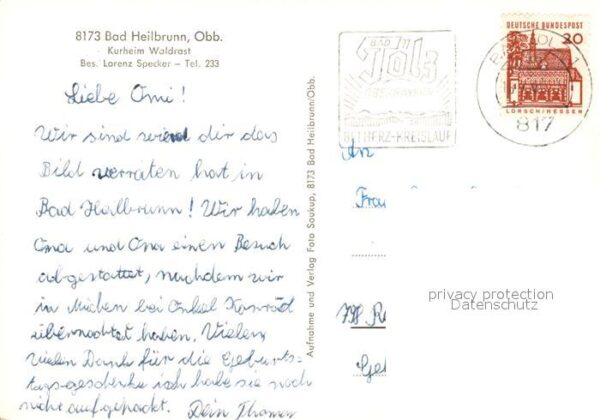 8173 Bad Heilbrunn, Obb.
Kurheim Waldrast
Bes. Lorenz Specker – Tel. 233
Liebe Omi!
Wir sind dir das
Bild verraten hat in
Bad Heilbrunn! Wir haben
Oma und Opa einen Besuch
abgestattet, nachdem wir
in bei Onkel Konrad
übernachtet haben. Vielen,
vielen Dank für die Geburts-
tagsgeschenke ich habe sie noch
nicht aufgepackt. Dein Thomas
Aufnahme und Verlag Foto Soukup, 8173 Bad Heilbrunn/Obb.
BAD
Tölz
OBERBAYERN
HERZ-KREISLAUF
DEUTSCHE BUNDESPOST
20
LORSCH/HESSEN
817
An
Frau
798 Re
privacy protection
Datenschutz